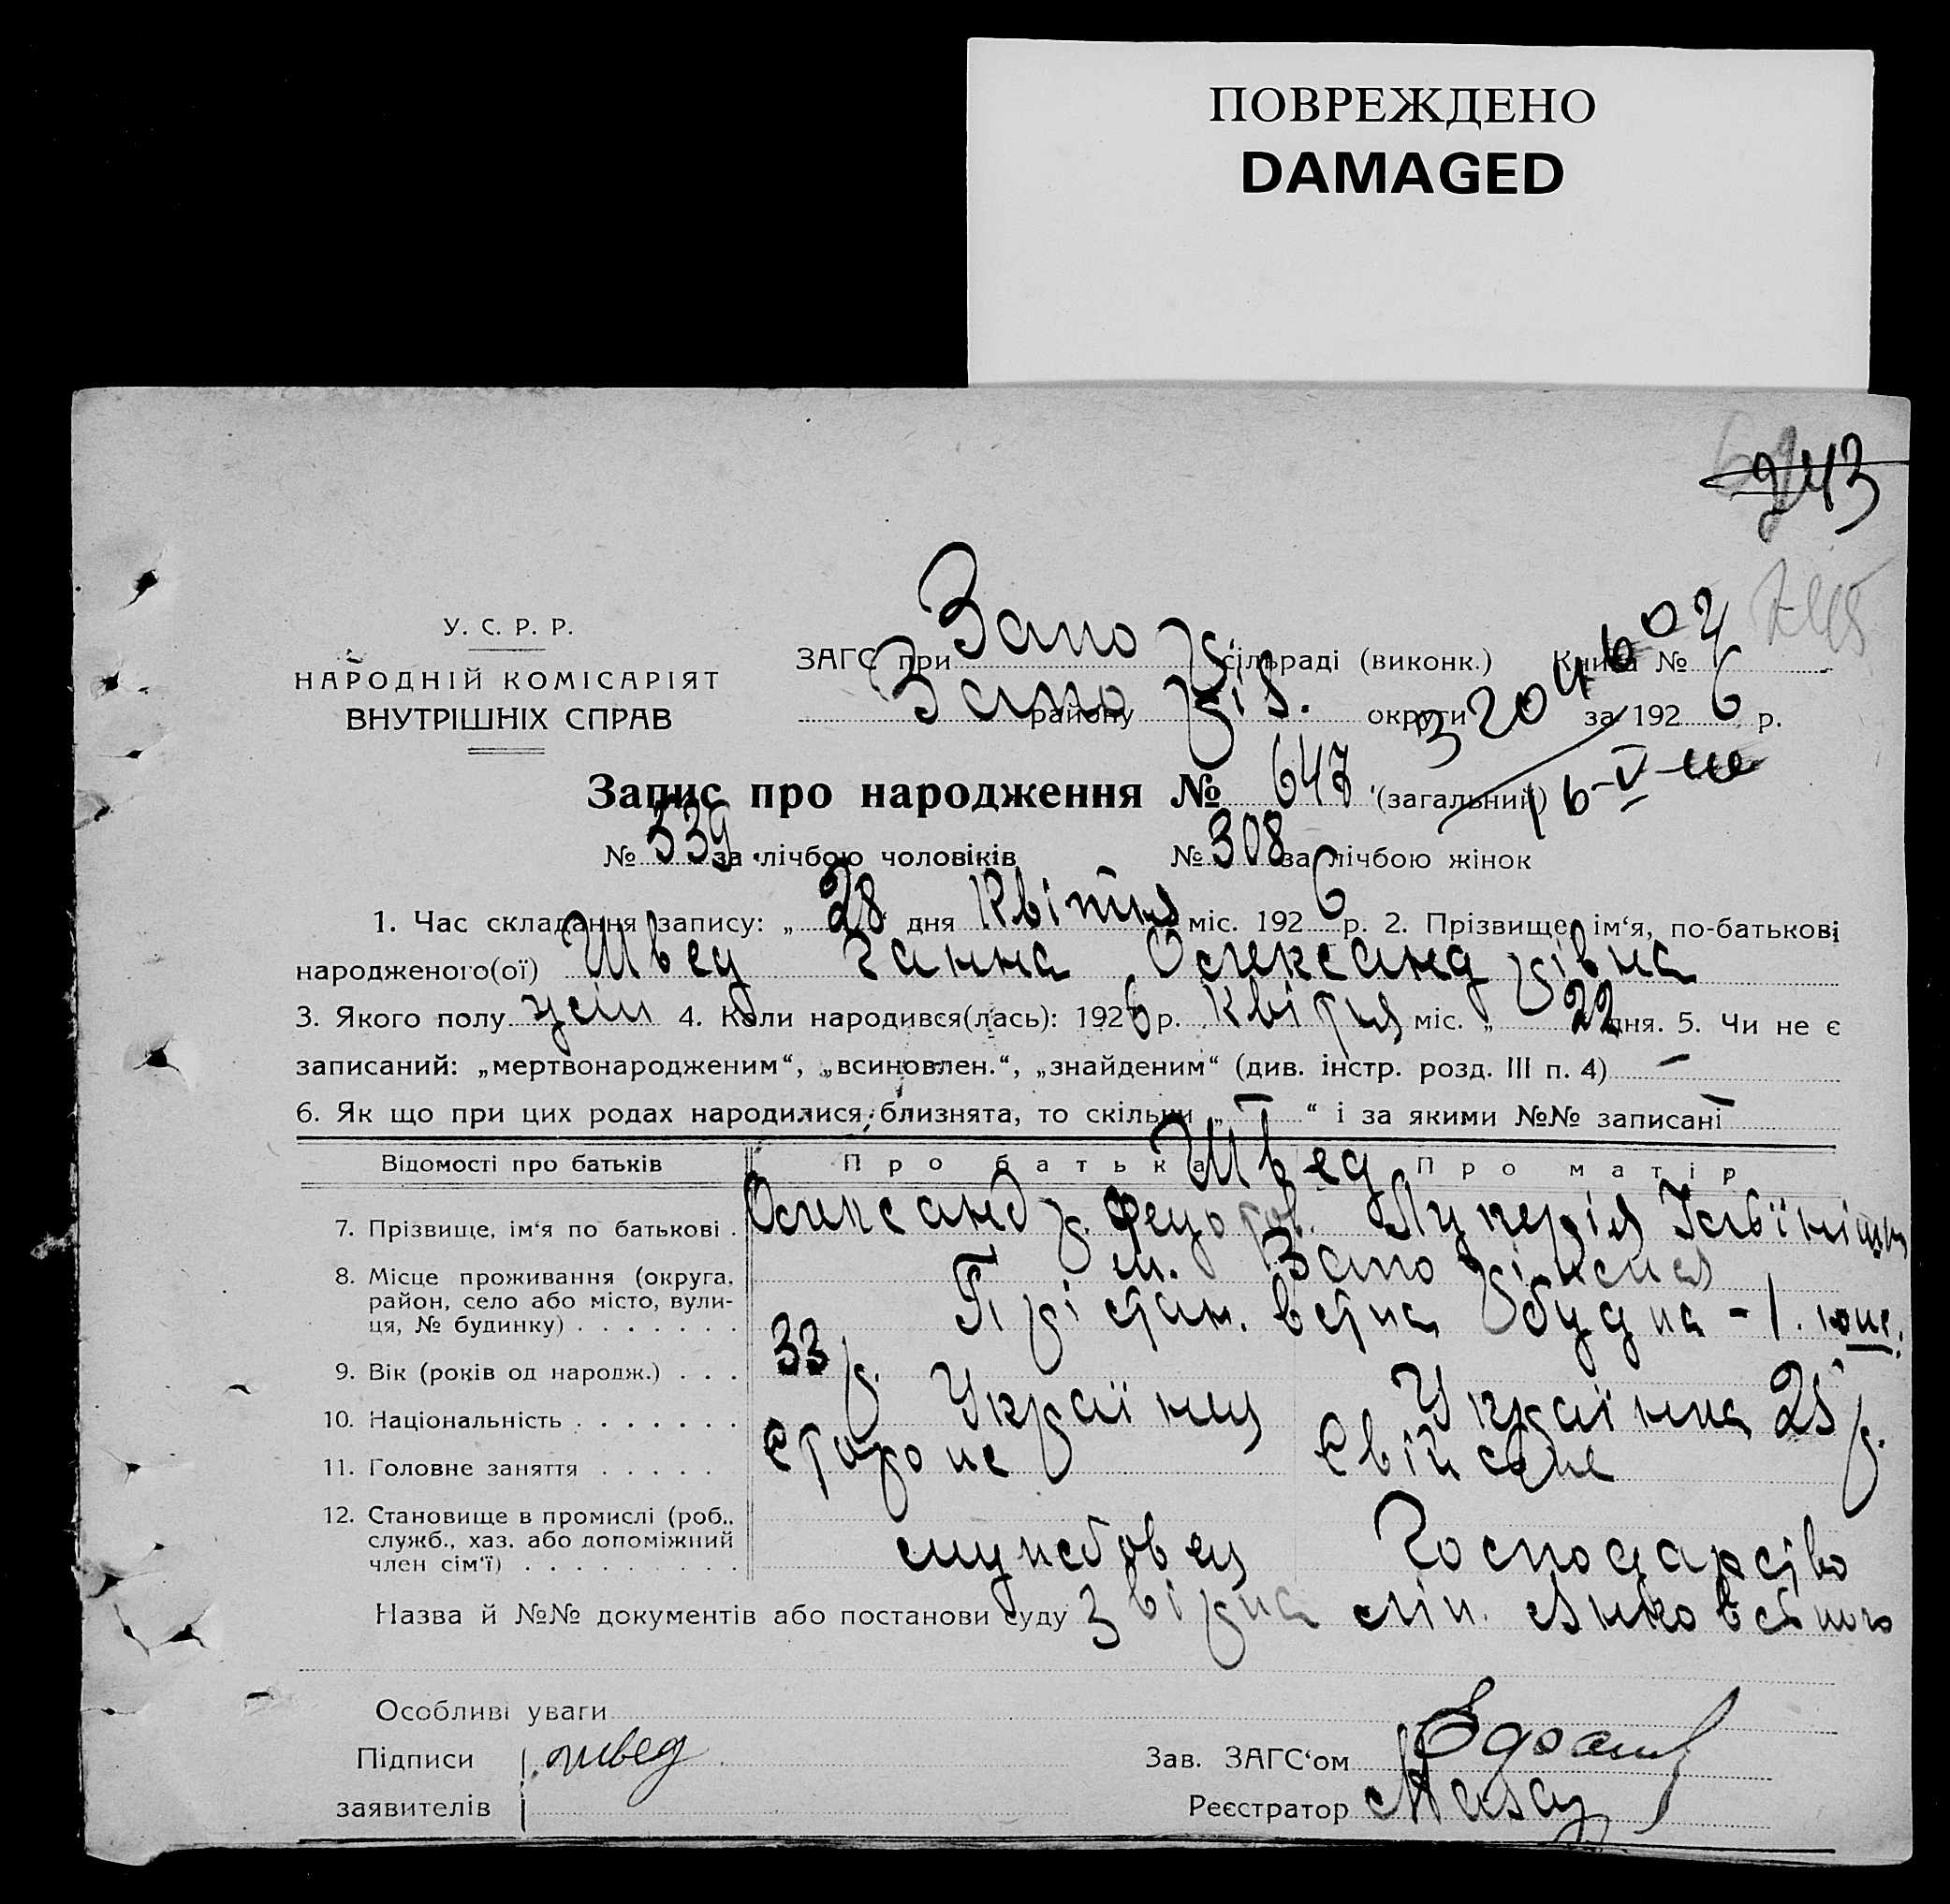 ПОВРЕЖДЕНО
DAMAGED
243
У. С. Р. Р.
НАРОДНІЙ КОМІСАРІЯТ
ВНУТРІШНІХ СПРАВ
ЗАГС при Запор сільраді (виконк.) Книга №
Запо району різ. округи за 1926 р.
Запис про народження № 647 (загальний)
№ 339 за лічбою чоловіків № 308 за лічбою жінок
1. Час складання запису: „ 28 дня Квітня міс. 1926 р. 2. Прізвище, ім‘я, по-батькові
народженого(ої) Швед Ганна Олександрівна
3. Якого полу жін 4. Коли народився(лась): 1926 р. Квітня міс. „ 22 дня. 5. Чи не є
записаний: „мертвонародженим“, „всиновлен.“, „знайденим“ (див. інстр. розд. III п. 4) —
6. Як що при цих родах народилися близнята, то скільки „ — “ і за якими №№ записані —
Відомості про батьків Про батька Про матір
Швед
7. Прізвище, ім‘я по батькові . Олександр. Федоров. Лукерія
8. Місце проживання (округа, район, село або місто, вулиця, № будинку) . . . . . . . м. Запоріжжя
будка - 1.
9. Вік (років од народж.) . . . 33 р. 25 р.
10. Національність . . . . . . . Українец Українка
11. Головне заняття . . . . . Сторож Свійське
12. Становище в промислі (роб., служб., хаз. або допоміжний член сім‘ї) . . . . . . . . . службовец Господарство
Назва й №№ документів або постанови суду
Особливі уваги
Підписи Швед Зав. ЗАГС‘ом
заявителів Реєстратор